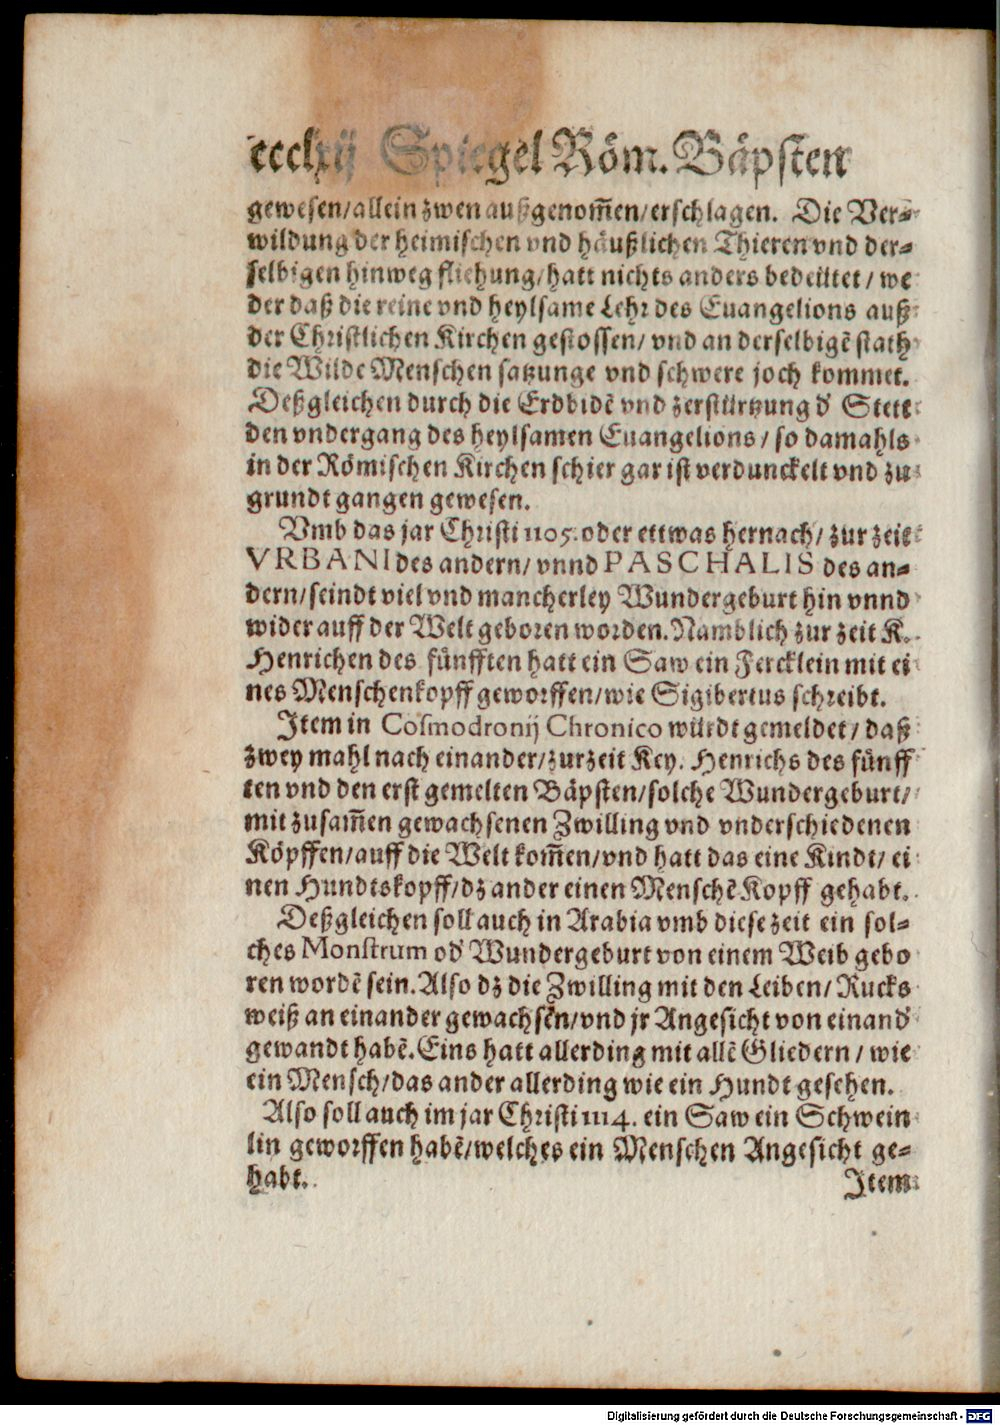 ccclxij Spiegel Röm. Bäpsten
gewesen/allein zwen außgenom̃en/erschlagen. Die Ver-
wildung der heimischen vnd häußlichen Thieren vnd der-
selbigen hinweg fliehung/hatt nichts anders bedeütet/we
der daß die reine vnd heylsame Lehr des Euangelions auß
der Christlichen Kirchen gestossen/vnd an derselbigẽ stath
die Wilde Menschen satzunge vnd schwere joch kommet.
Deßgleichen durch die Erdbidẽ vnd zerstürtzung d' Stett
den vndergang des heylsamen Euangelions/so damahls
in der Römischen Kirchen schier gar ist verdunckelt vnd zu
grundt gangen gewesen.
Vmb das jar Christi 1105. oder ettwas hernach/zur zeit
VRBANI des andern/vnnd PASCHALIS des an-
dern/seindt viel vnd mancherley Wundergeburt hin vnnd
wider auff der Welt geboren worden. Namblich zur zeit K.
Henrichen des fünfften hatt ein Saw ein Fercklein mit ei
nes Menschenkopff geworffen/wie Sigibertus schreibt.
Item in Cosmodronij Chronico würdt gemeldet/daß
zwey mahl nach einander/zur zeit Key. Henrichs des fünff
ten vnd den erst gemelten Bäpsten/solche Wundergeburt/
mit zusam̃en gewachsenen Zwilling vnd vnderschiedenen
Köpffen/auff die Welt kom̃en/vnd hatt das eine Kindt/ei
nen Hundtskopff/dz ander einen Menschẽ Kopff gehabt.
Deßgleichen soll auch in Arabia vmb diese zeit ein sol-
ches Monstrum od' Wundergeburt von einem Weib gebo
ren wordẽ sein. Also dz die Zwilling mit den Leiben/Rucks
weiß an einander gewachsẽn/vnd jr Angesicht von einand'
gewandt habẽ. Eins hatt allerding mit allẽ Gliedern/wie
ein Mensch/das ander allerding wie ein Hundt gesehen.
Also soll auch im jar Christi 1114. ein Saw ein Schwein
lin geworffen habẽ/welches ein Menschen Angesicht ge-
habt.
Item
Digitalisierung gefördert durch die Deutsche Forschungsgemeinschaft - DFG